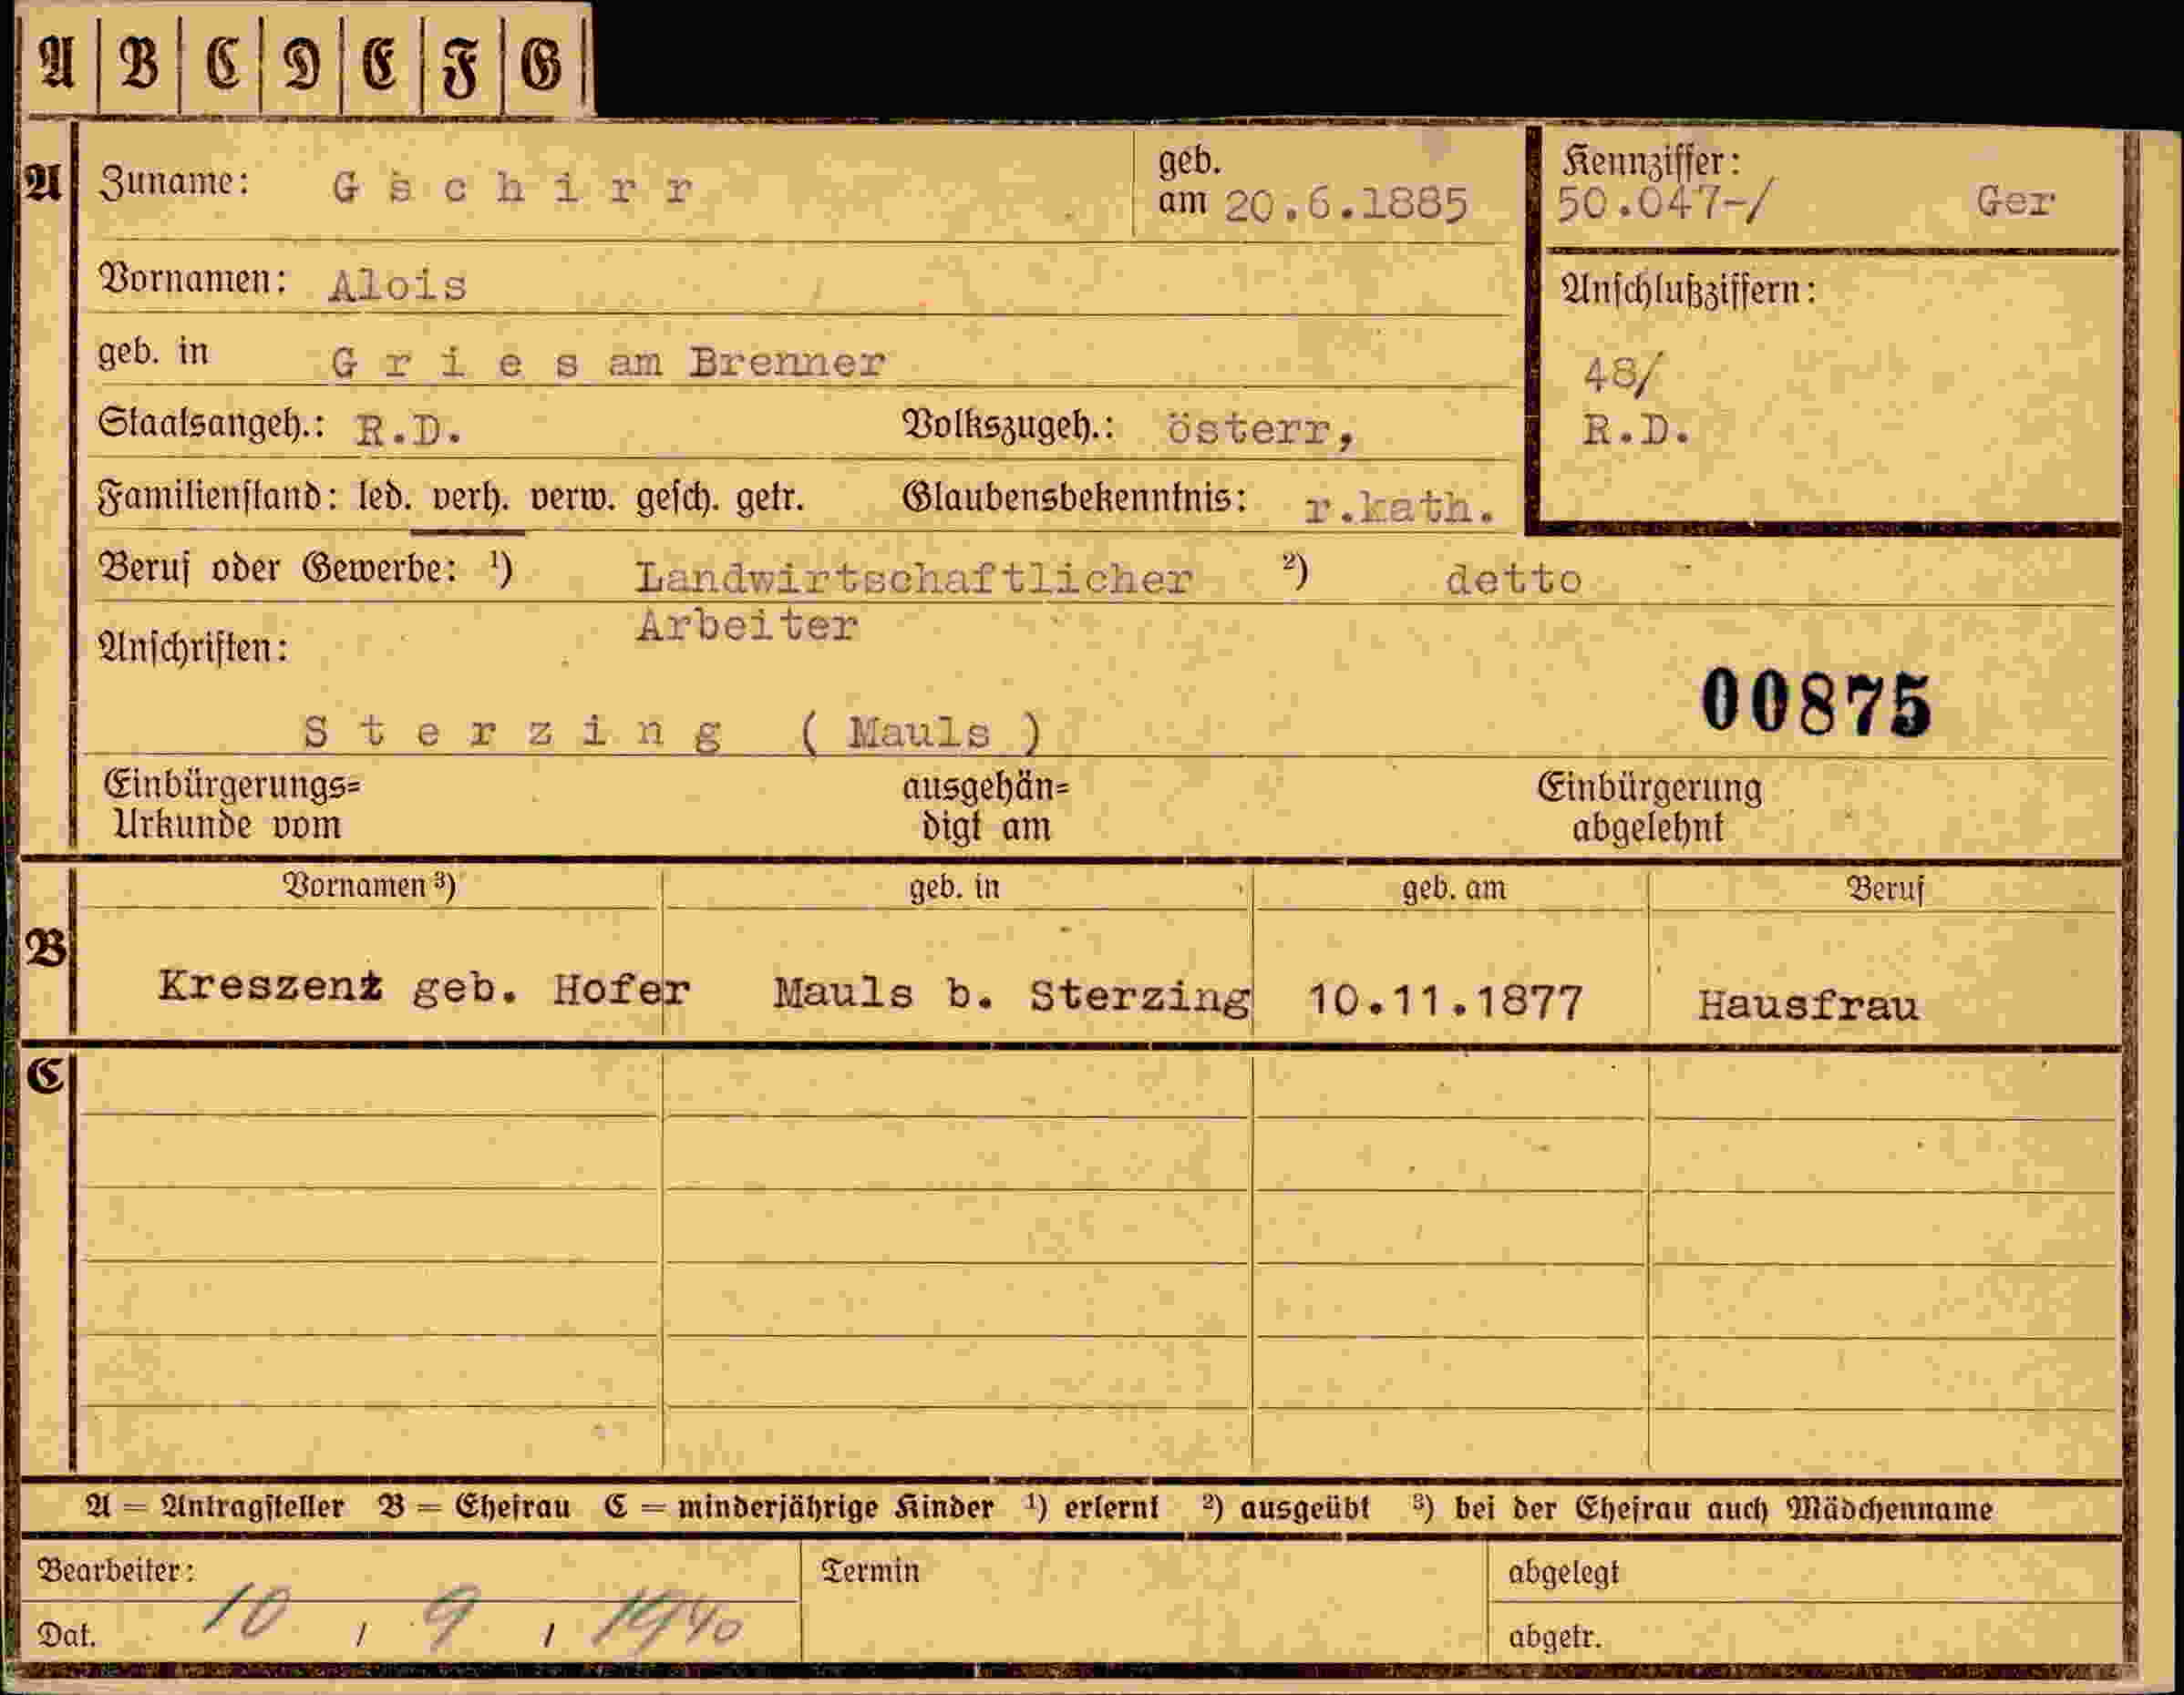 A B C D E F G
A Zuname: Gschirr geb. am 20.6.1885 Kennziffer: 50.047-/ Ger
Vornamen: Alois Anschlußziffern:
geb. in Gries am Brenner 48/
Staatsangeh.: R.D. Volkszugeh.: österr, R.D.
Familienstand: led. verh. verw. gesch. getr. Glaubensbekenntnis: r.kath.
Beruf oder Gewerbe: ¹) Landwirtschaftlicher ²) detto
Arbeiter
Anschriften:
00875
Sterzing ( Mauls )
Einbürgerungs= ausgehän= Einbürgerung
Urkunde vom digt am abgelehnt
Vornamen ³) geb. in geb. am Beruf
B
Kreszenz geb. Hofer Mauls b. Sterzing 10.11.1877 Hausfrau
C
A = Antragsteller B = Ehefrau C = minderjährige Kinder ¹) erlernt ²) ausgeübt ³) bei der Ehefrau auch Mädchenname
Bearbeiter: Termin abgelegt
Dat. 10 / 9 / 1940 abgetr.